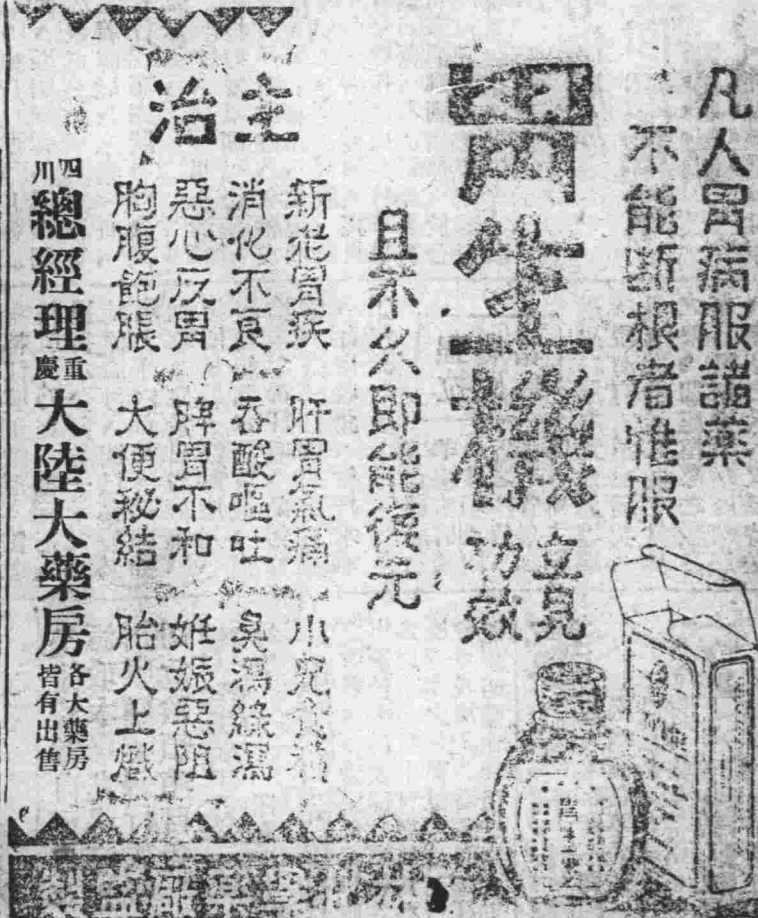 凡人胃病服諸藥
不能斷根者惟服
胃生機
立見
功效
且不久即能復元
主治
新老胃疾
肝胃氣痛
小兒食積
消化不良
吞酸嘔吐
臭瀉綠瀉
惡心反胃
脾胃不和
妊娠惡阻
胸腹飽脹
大便秘結
胎火上熾
四川
總經理
重慶
大陸大藥房
各大藥房
皆有出售
化學藥廠監製